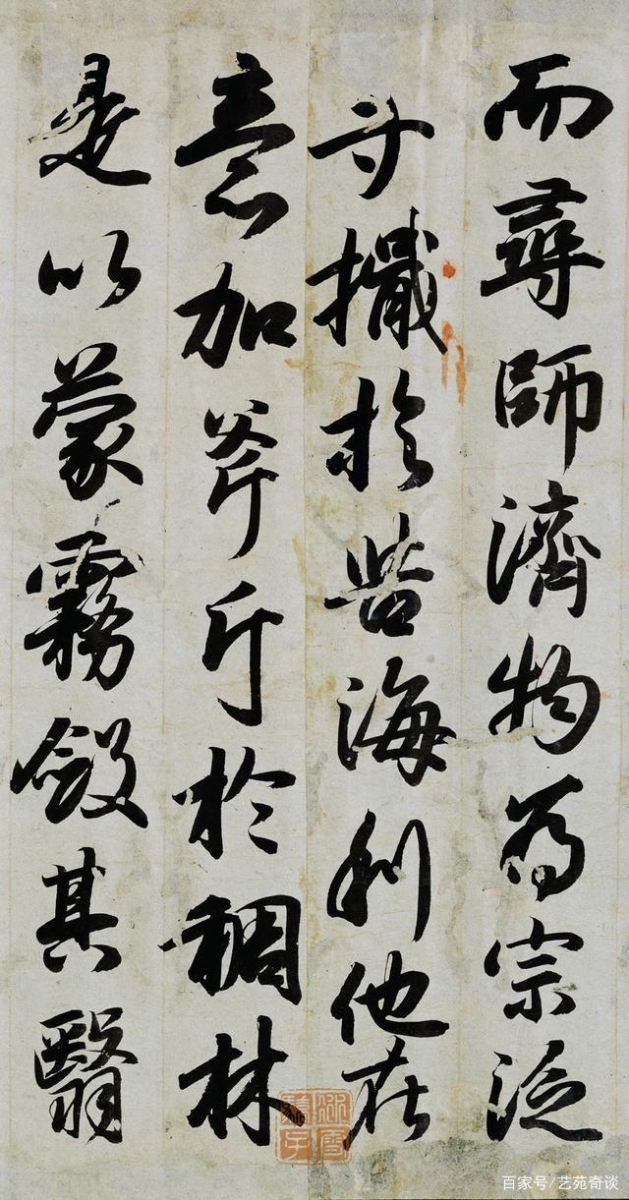 而尋師濟物為宗泛
寸檝於苦海利他在
意加斧斤於稠林
是以蒙霧斂其翳
百家号/艺苑奇谈